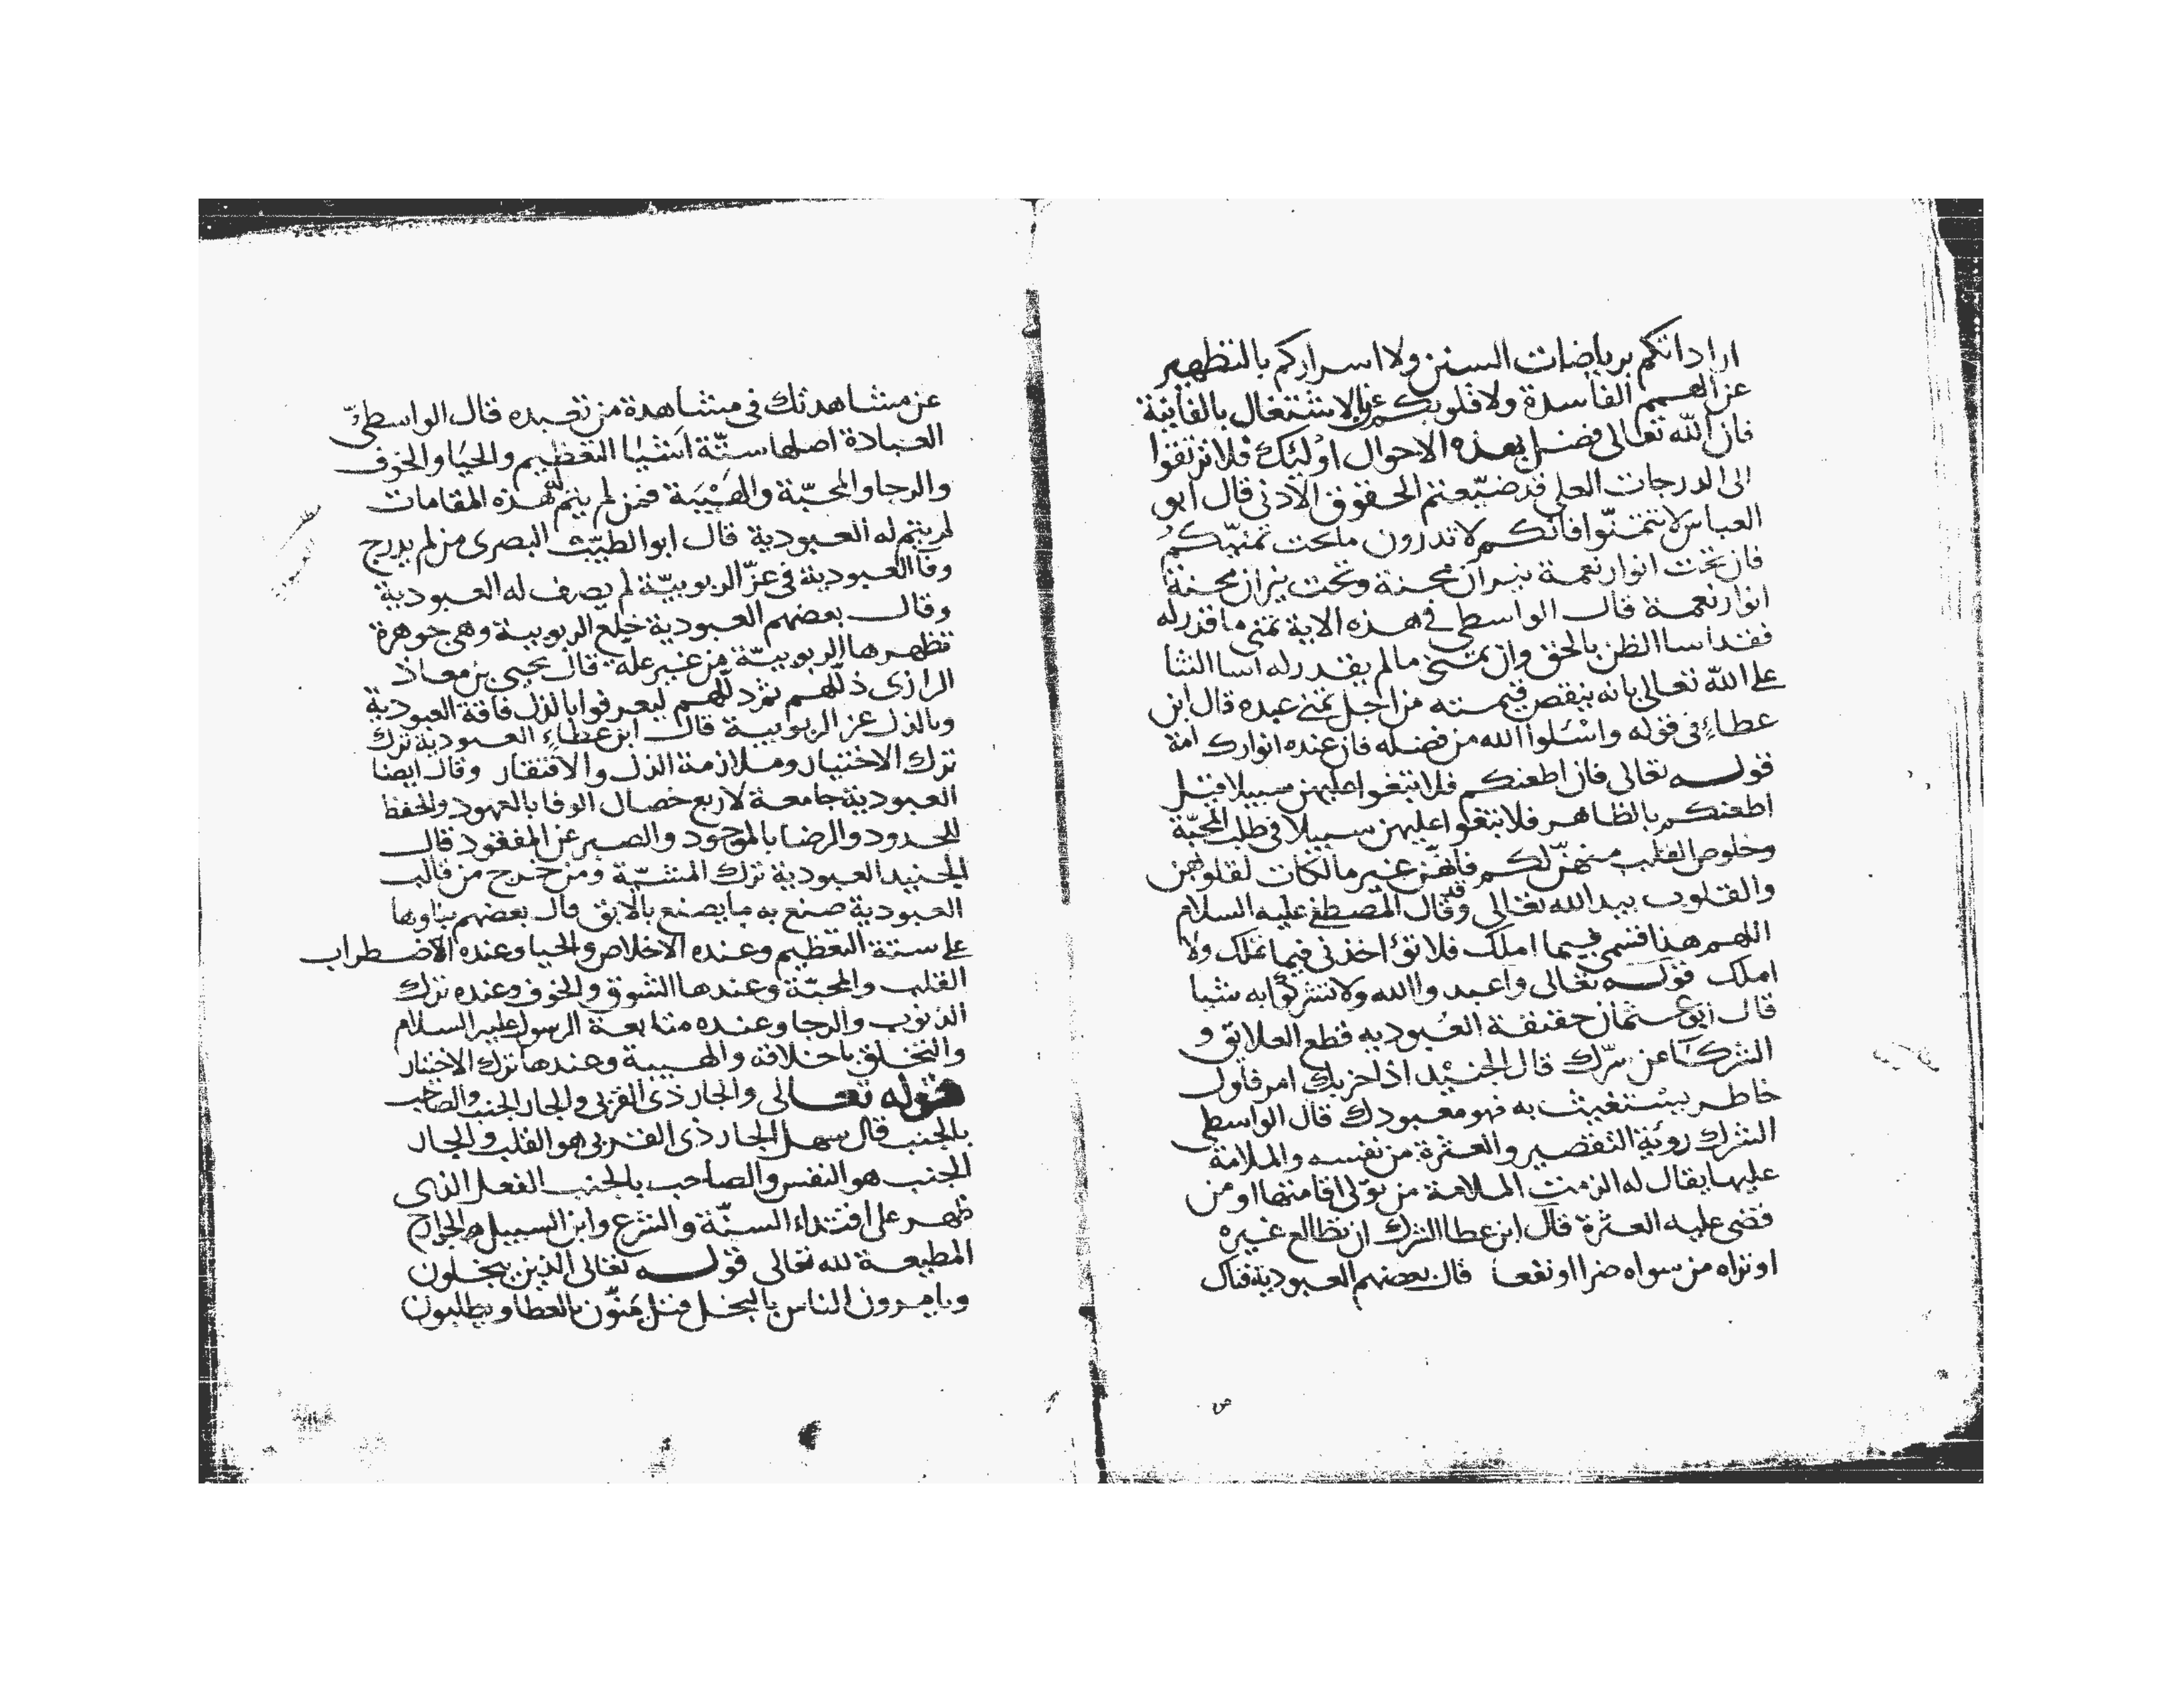 اراداتكم برياضات السنن ولا اسراركم بالتطهير
عن الهمم الفاسدة ولا قلوبكم عن الاشتغال بالفانية
فان الله تعالى فضل بهذه الاحوال اوليك فلا ترتقوا
الى الدرجات العلى قد ضيعتم الحقوق الادنى قال ابو
العباس لا تتمنوا فانكم لا تدرون ما تحت تمنيكم
فان تحت انوار نعمة نيران محنة وتحت نيران محنة
انوار نعمة قال الواسطى في هذه الاية تمنى ما قدر له
فقد اسا الظن بالحق وان تمنى مالم يقدر له اسا الثنا
على الله تعالى بانه ينقص قيمته من اجل تمنى عبده قال ابن
عطاء في قوله واسئلوا الله من فضله فان عنده انوار كرامة
قوله تعالى فان اطعنكم فلا تبغوا عليهن سبيلا قيل
اطعنكم بالظاهر فلا تبغوا عليهن سبيلا في طلب المحبة
وخلوص القلب منهن لكم فانهن غير مالكات لقلوبهن
والقلوب بيد الله تعالى وقال المصطفى عليه السلام
اللهم هذا قسمى فيما املك فلا تؤاخذنى فيما تملك ولا
املك قوله تعالى واعبدوا الله ولا تشركوا به شيا
قال ابو عثمان حقيقة العبوديه قطع العلائق و
الشركا عن سرك قال الجنيد اذا احزبك امر فاول
خاطر يستغيث به فهو معبودك قال الواسطى
الشرك روية التقصير والعثرة من نفسه والملامة
عليها يقال له الزمت الملامة من تولى اقامتها او من
قضى عليه العثرة قال ابن عطا الشرك ان تطالع غيره
او تراه من سواه ضرا او نفعا قال بعضهم العبودية فناك
عن مشاهدتك في مشاهدة من تعبده قال الواسطى
العبادة اصلها ستة اشيا التعظيم والحيا والخوف
والرجا والمحبة والهيبة فمن لم يتم له هذه المقامات
لم يتم له العبودية قال ابو الطيب البصرى من لم يدرج
وفا العبودية في عز الربوبية لم يصف له العبودية
وقال بعضهم العبودية خلع الربوبية وهى جوهرة
تظهرها الربوبية من غير علة قال يحيى بن معاذ
الرازى ذللهم ثم دللهم ليعرفوا بالذل فاقة العبودية
وبالذل عز الربوبية قال ابن عطاء العبودية ترك
ترك الاختيار وملازمة الذل والافتقار وقال ايضا
العبودية جامعة لاربع خصال الوفا بالعهود والحفظ
للحدود والرضا بالموجود والصبر عن المفقود قال
الجنيد العبودية ترك المشية ومن خرج من قالب
العبودية صنع به ما يصنع بالابق قال بعضهم بناوها
على ستة التعظيم وعنده الاخلاص والحيا وعنده الاضطراب
القلب والمحبة وعندها الشوق والخوف وعنده ترك
الذنوب والرجا وعنده متابعة الرسول عليه السلام
والتخلق باخلاقه والهيبة وعندها ترك الاختيار
قوله تعالى والجار ذى القربى والجار الجنب والصاحب
بالجنب قال سهل الجار ذى القربى هو القلب والجار
الجنب هو النفس والصاحب بالجنب الفعل الذى
ظهر على اقتداء السنة والشرع وابن السبيل الجوارح
المطيعة لله تعالى قوله تعالى الذين يبخلون
ويامرون الناس بالبخل قيل يمنون بالعطا ويطلبون